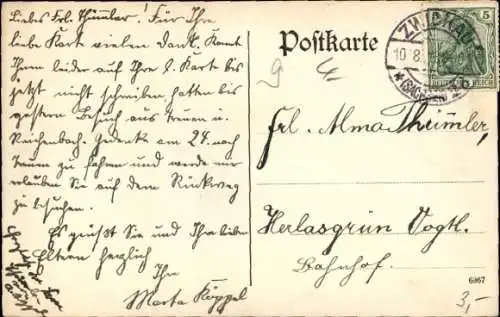 Liebes Frl. Thümmler! Für Ihre
liebe Karte vielen Dank. Konnt
Ihnen leider auf Ihre l. Karte bis
jetzt nicht schreiben, hatten bis
gestern Besuch aus Treuen u.
Reichenbach. Gedenke am 24. nach
Treuen zu fahren und werde mir
erlauben Sie auf dem Rückweg
zu besuchen.
Es grüßt Sie und Ihre lieben
Eltern herzlich
Ihre
Marta Köppel
Postkarte
5
ZWICKAU
10.8.
(SACHSEN)
DEUTSCHES REICH
9
Frl. Alma Thümmler,
Herlasgrün Vogtl.
Bahnhof.
6867
3,-